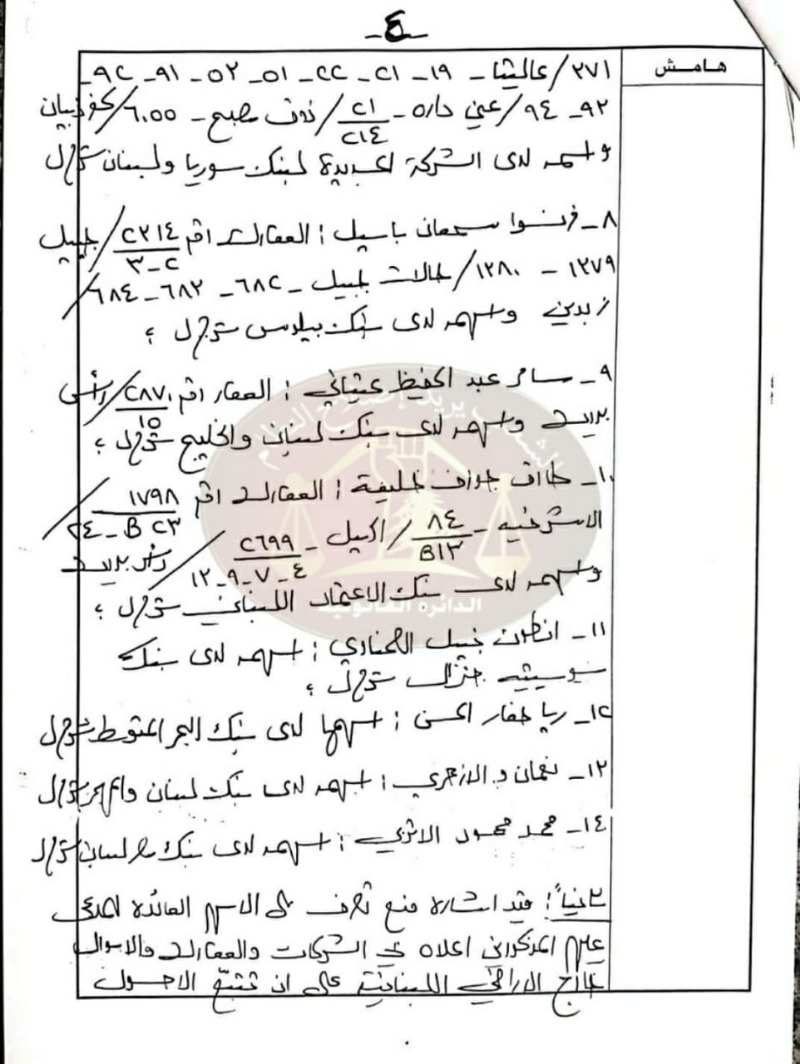 -٤-
هامش
٢٧١/عاليتا - ١٩ - ٢١ - ٢٢ - ٥١ - ٥٢ - ٩١ - ٩٢ -
٩٢ - ٩٤/عين داره - ٢١/٢١٤ ذوق مصبح - ٦٠٥٥/كفردبيان
واسهمه لدى الشركة الجديدة لبنك سوريا ولبنان ش.م.ل
٨- فرنسوا سمعان باسيل: العقارات رقم ٢٢١٤/٣-٢ جبيل
١٢٧٩ - ١٢٨٠/حالات جبيل - ٦٨٢ - ٦٨٣ - ٦٨٤/
زبدين واسهمه لدى بنك بيبلوس ش.م.ل؛
٩- سامر عبد الحفيظ عيتاني: العقار رقم ٢٨٧١/١٥ رأس
بيروت واسهمه لدى بنك لبنان والخليج ش.م.ل؛
١٠- طارق جوزف خليفة: العقارات رقم ١٧٩٨/B ٢٣ - ٢٤
الاشرفية - ٨٤/B١٣ اكبيل - ٢٦٩٩/٤-٧-٩-١٢ رأس بيروت
واسهمه لدى بنك الاعتماد اللبناني ش.م.ل؛
١١- انطون نبيل الصحناوي: اسهمه لدى بنك
سوسيتيه جنرال ش.م.ل؛
١٢- ريا حفار الحسن: اسهمها لدى بنك البحر المتوسط ش.م.ل
١٣- نعمان الازهري: اسهمه لدى بنك لبنان والمهجر ش.م.ل
١٤- محمد محمود الاتربي: اسهمه لدى بنك مصر لبنان ش.م.ل
ثانياً: قيد اشارة منع تصرف على الاسهم العائدة للمدعى
عليهم المذكورين اعلاه في الشركات والعقارات والاموال
خارج الاراضي اللبنانية على ان تتبع الاصول
الشعب يريد إصلاح النظام
الدائرة القانونية